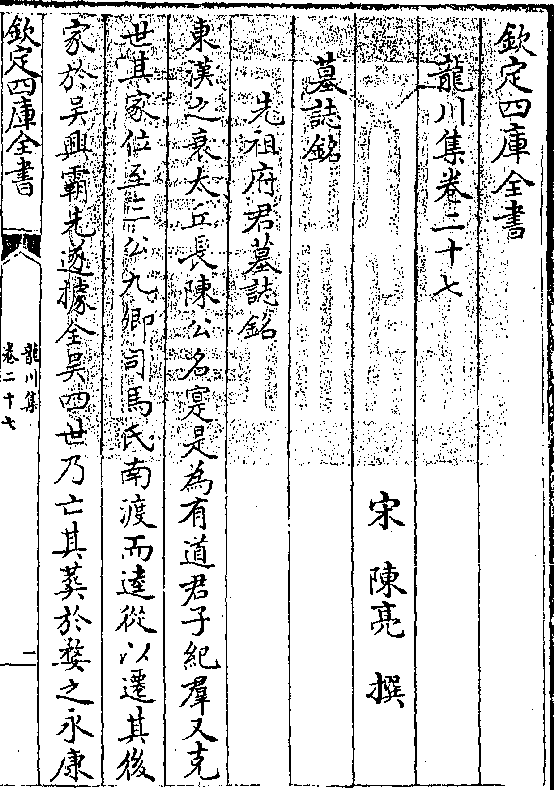 欽定四庫全書
龍川集卷二十七
宋 陳亮 撰
墓誌銘
先祖府君墓誌銘
東漢之衰太丘長陳公名寔是為有道君子紀羣又克
世其家位至三公九卿司馬氏南渡而逵從以遷其後
家於吳興霸先遂據全吳四世乃亡其葬於婺之永康
欽定四庫全書
龍川集
卷二十七
一